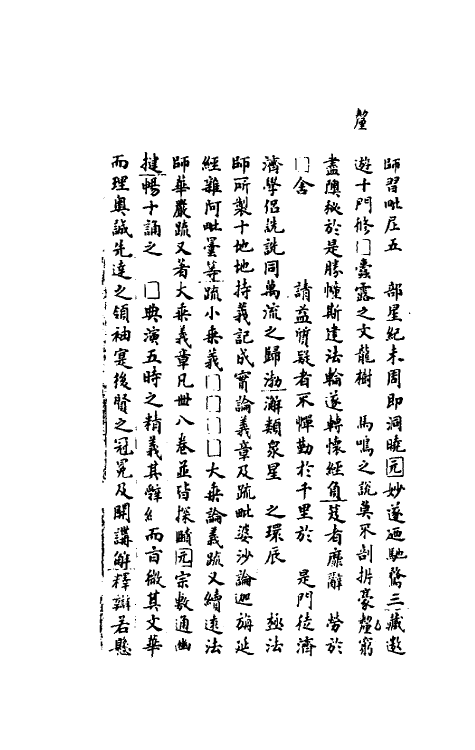 釐
師習毗尼五　部星紀未周即洞曉元妙遂迺馳騖三藏遨
遊十門修□囊露之文龍樹　馬鳴之說莫不剖析豪釐窮
盡隩秘於是勝幢斯建法輪遂轉懷經負笈者靡辭　勞於
□舍　請益質疑者不憚勤於千里於　是門徒濟
濟學侶詵詵同萬流之歸渤澥類衆星　之環辰　極法
師所製十地地持義記成實論義章及疏毗婆沙論迦旃延
經難阿毗曇等疏小乗義□□□□大乗論義疏又續遠法
師華嚴疏又著大乗義章凡卌八卷並皆探賾元宗敷通幽
揵暢十誦之　□典演五時之精義其辭　而旨微其文華
而理奥誠先達之領袖寔後賢之冠冕及開講解釋辯若懸